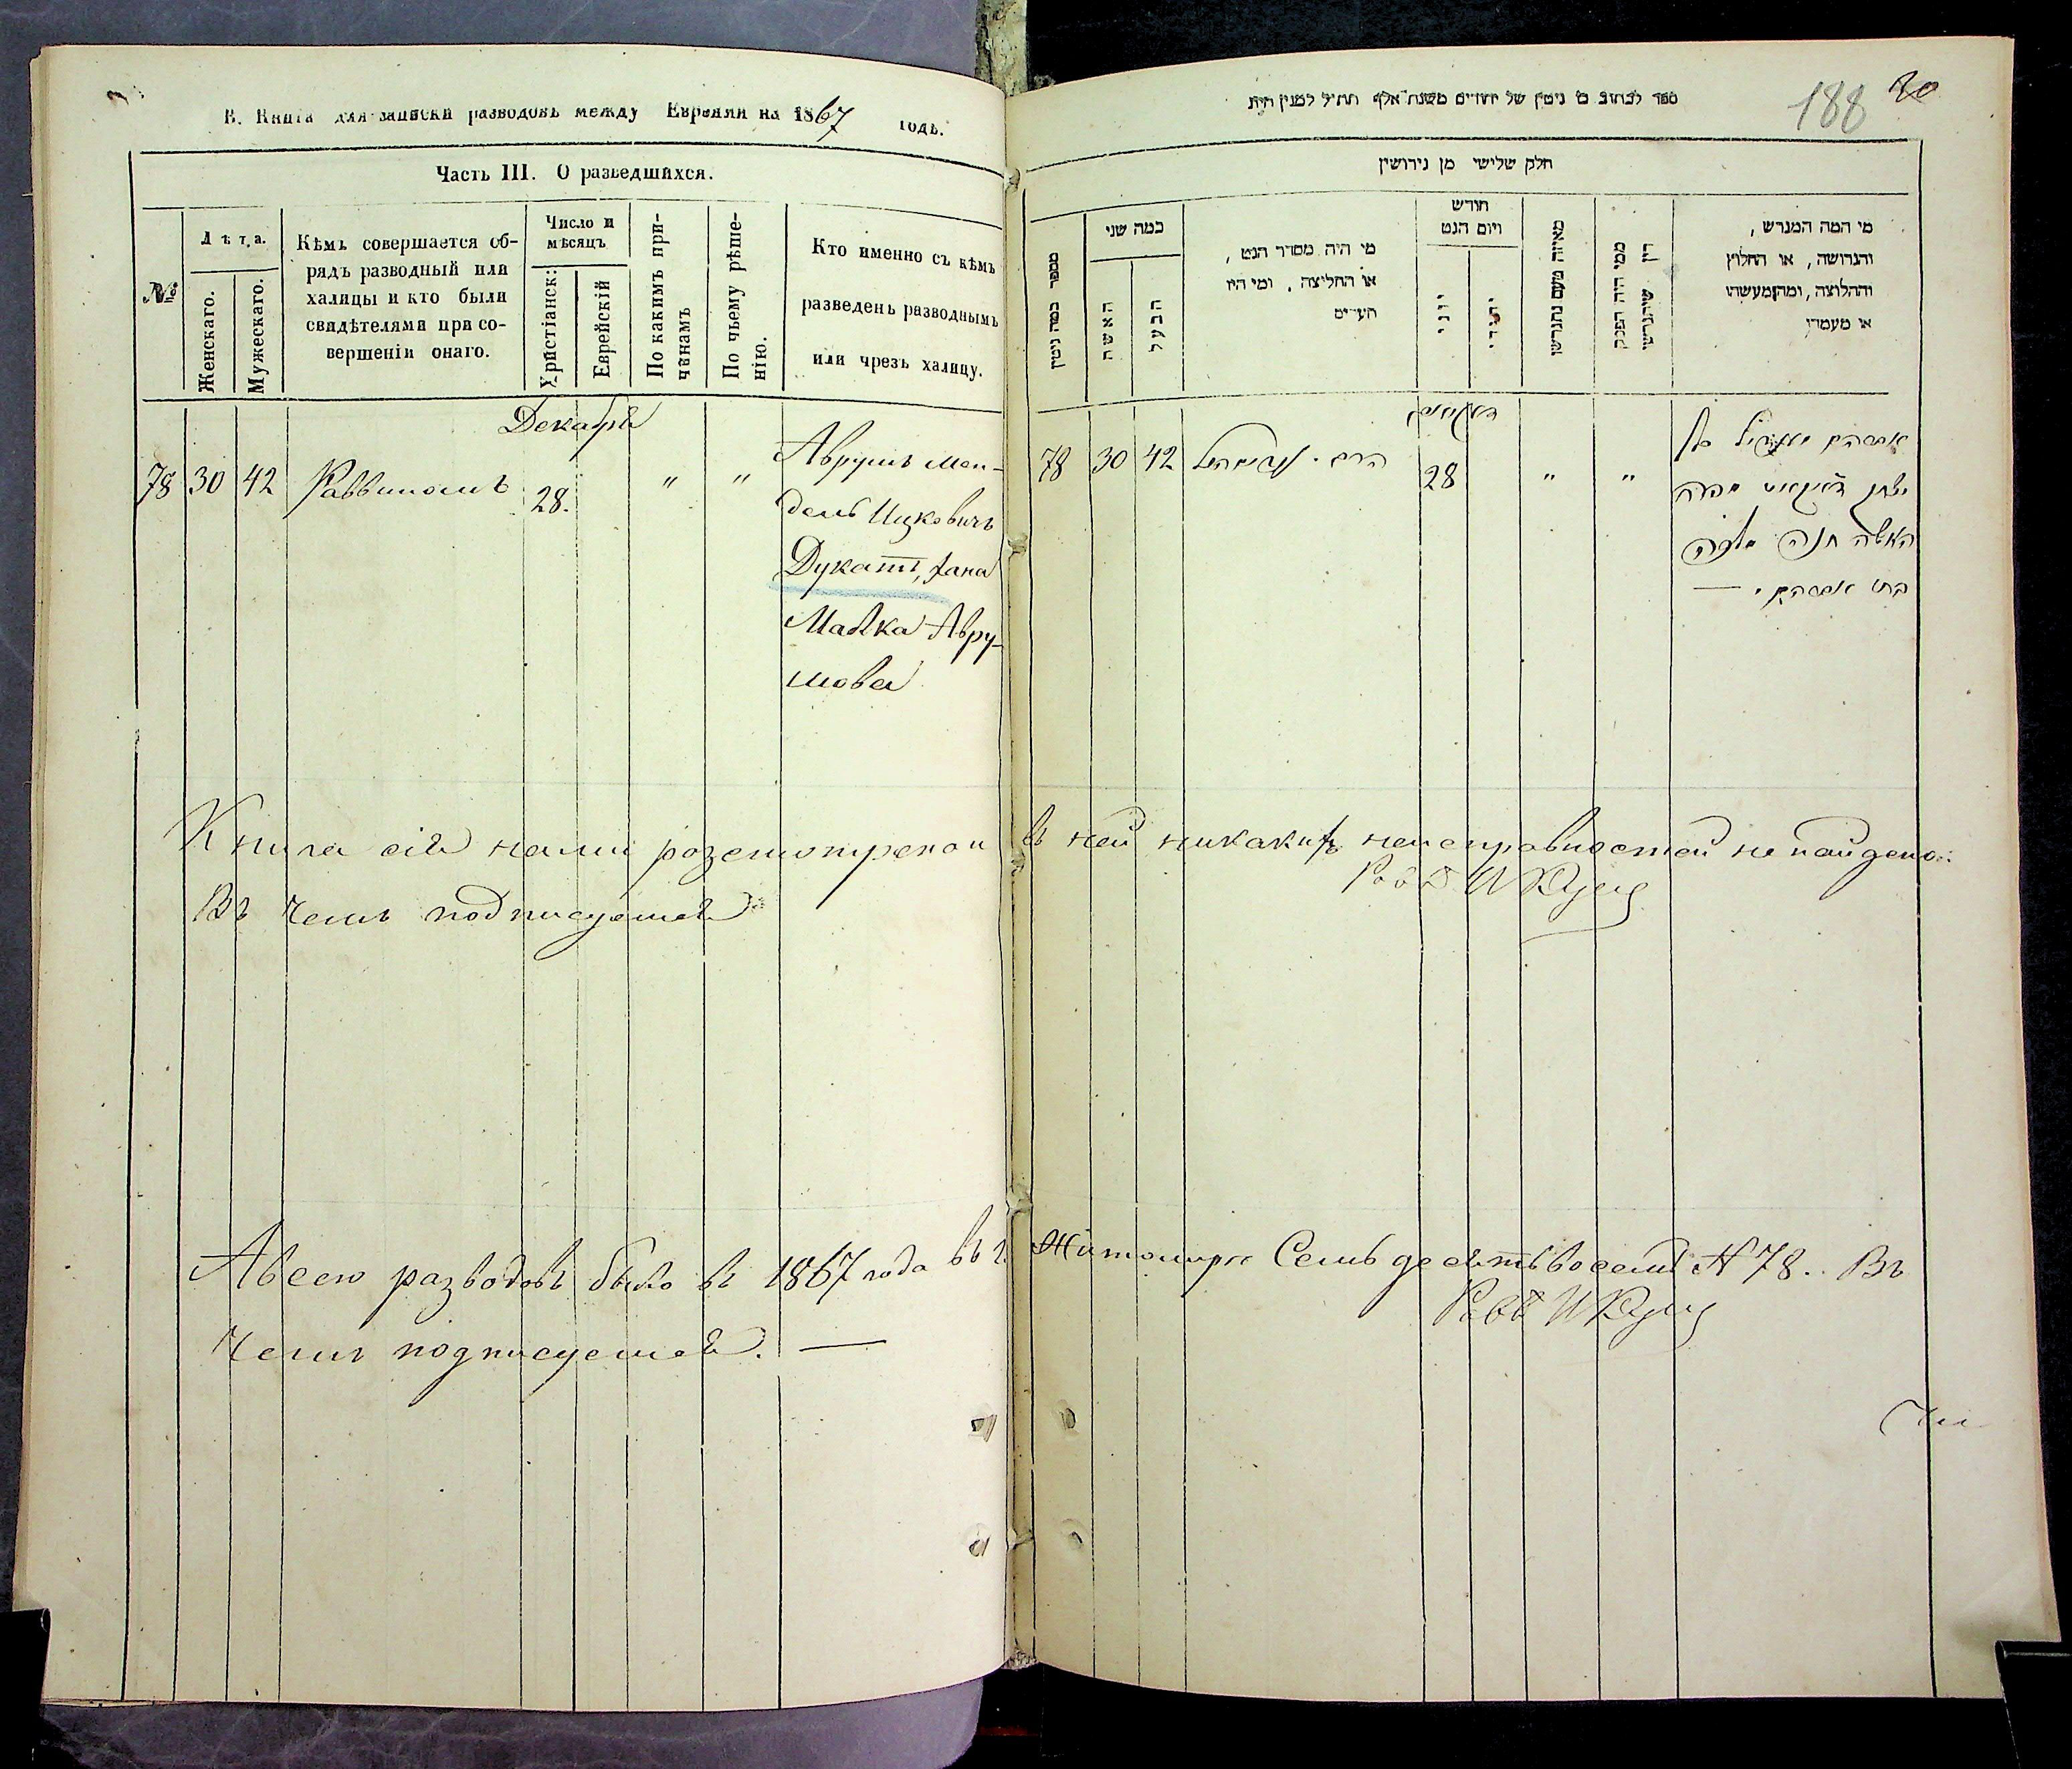 В. Книга для записки разводовъ между Евреями на 1867 годъ.
Часть III. О разведшихся.
№
Лѣта.
Женскаго.
Мужескаго.
Кѣмъ совершается об-
рядъ разводный или
халицы и кто были
свидѣтелями при со-
вершеніи онаго.
Число и
мѣсяцъ
Христіанск:
Еврейскій
По какимъ при-
чинамъ
По чьему рѣше-
нію.
Кто именно съ кѣмъ
разведенъ разводнымъ
или чрезъ халицу.
Декабря
78 30 42 Раввиномъ 28. " " Аврумъ Мен-
дель Ицковичъ
Дукатъ, Хана
Малка Авру-
мова
188
ספר לכתוב בו גיטין של יהודים משנת אלף תתי"ל למנין
חלק שלישי מן גירושין
מספר כמה גיטין
כמה שני
האשה
הבעל
מי היה מסדר הגט,
או החליצה, ומי היו
העדים
חודש
ויום הגט
יוני
יהודי
מאיזה טעם נתגרשו
ממי היה הפסק
דין שיתגרשו
מי המה המגרש,
והגרושה, או החלוץ
והחלוצה, ומה מעשהו
או מעמדו
78 30 42 הרב 28 " " אברהם מענדיל בן
יצחק דוקאט
האשה חנה מלכה
בת אברהם. —
Книга сія нами розсмотрена и въ ней никакихъ неисправностей не найдено:
Въ чемъ подписуемся
Авсего разводовъ было въ 1867 года въ г. Житомирѣ Семьдесятъ восемь № 78. Въ
чемъ подписуемся. —